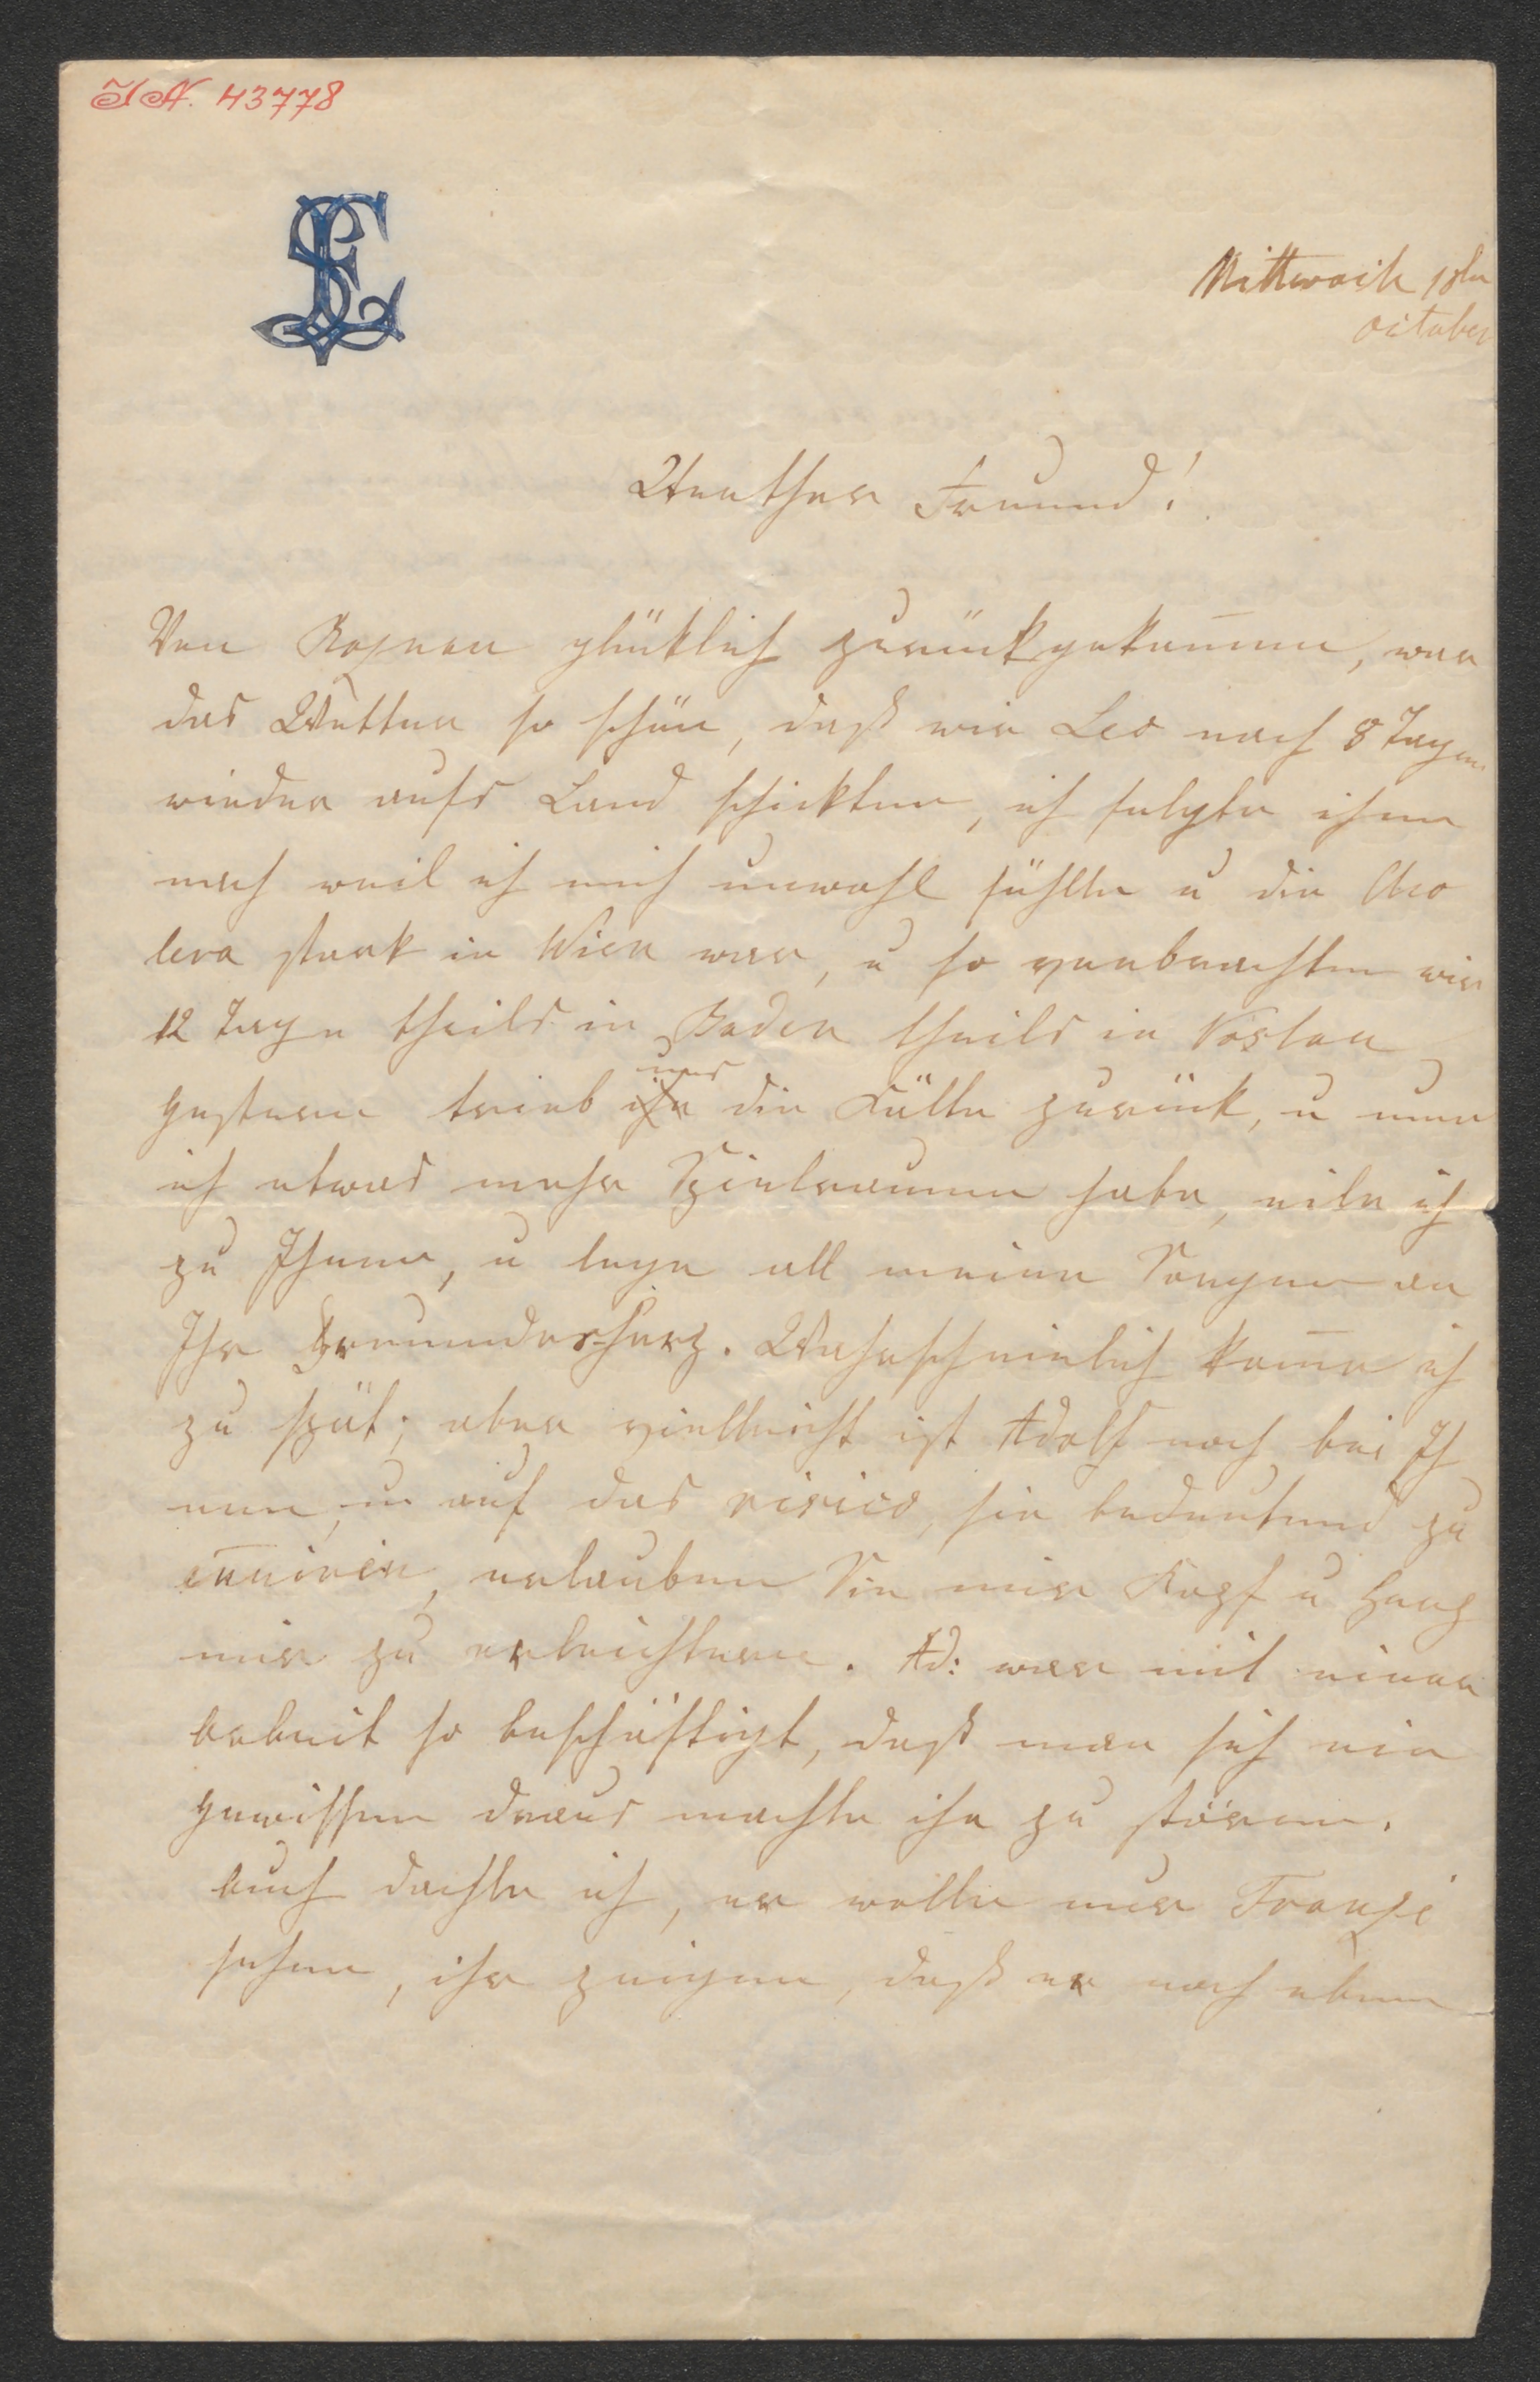 I N. 43778
Mittwoch 18ten
October
Werther Freund!
Von Rožnau glüklich zurückgekom̅en, war
das Wetter so schön, daß wir Leo nach 8 Tagen
wieder aufs Land schickten, ich folgte ihm
nach weil ich mich unwohl fühlte u die Cho
lera stark in Wien war, u so verbrachten wir
12 Tage theils in Baden theils in Vöslau
gestern trieb uns die Kälte zurück, u nun
ich etwas mehr Spielraum habe, eile ich
zu Ihnen, u lege all meine Sorgen an
Ihr Freundesherz. Wahrscheinlich kom̅e ich
zu spät; aber vielleicht ist Adolf noch bei Ih
nen, u auf das risico, sie bedeutend zu
en̅uiren, erlauben Sie mir Kopf u Herz
mir zu erleichtern. Ad: war mit einer
Arbeit so beschäftigt, daß man sich ein
Gewissen draus machte ihn zu stören.
Auch dachte ich, er wolle nur Franzi
sehen, ihr zeigen, daß er noch eben